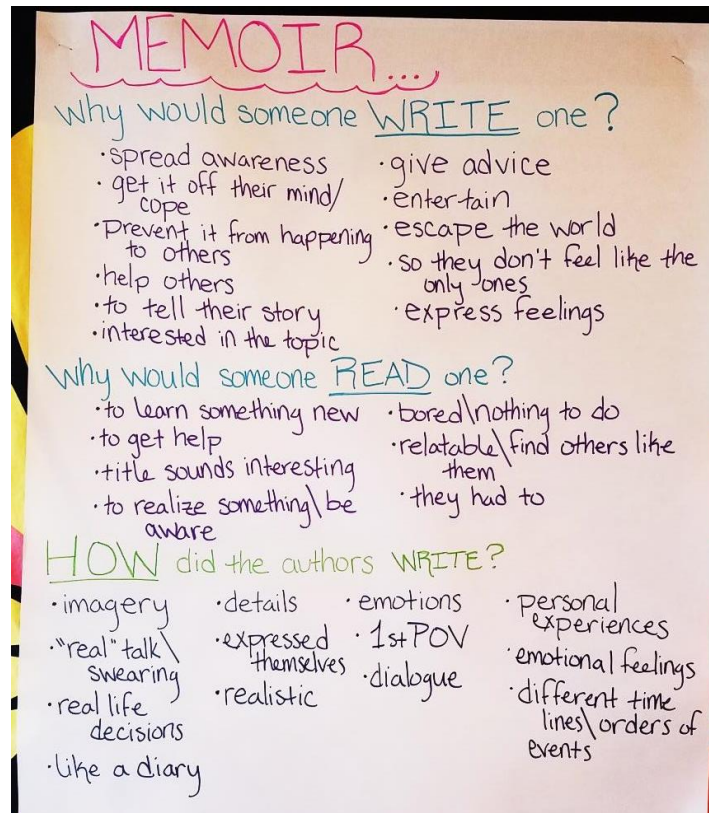 MEMOIR...
Why would someone WRITE one?
·spread awareness
·get it off their mind/
cope
·Prevent it from happening
to others
·help others
·to tell their story
·interested in the topic
·give advice
·entertain
·escape the world
·so they don't feel like the
only ones
·express feelings
Why would someone READ one?
·to learn something new
·to get help
·title sounds interesting
·to realize something\be
aware
·bored\nothing to do
·relatable\find others like
them
·they had to
HOW did the authors WRITE?
·imagery
·"real" talk\
swearing
·real life
decisions
·like a diary
·details
·expressed
themselves
·realistic
·emotions
·1st POV
·dialogue
·personal
experiences
·emotional feelings
·different time
lines\orders of
events